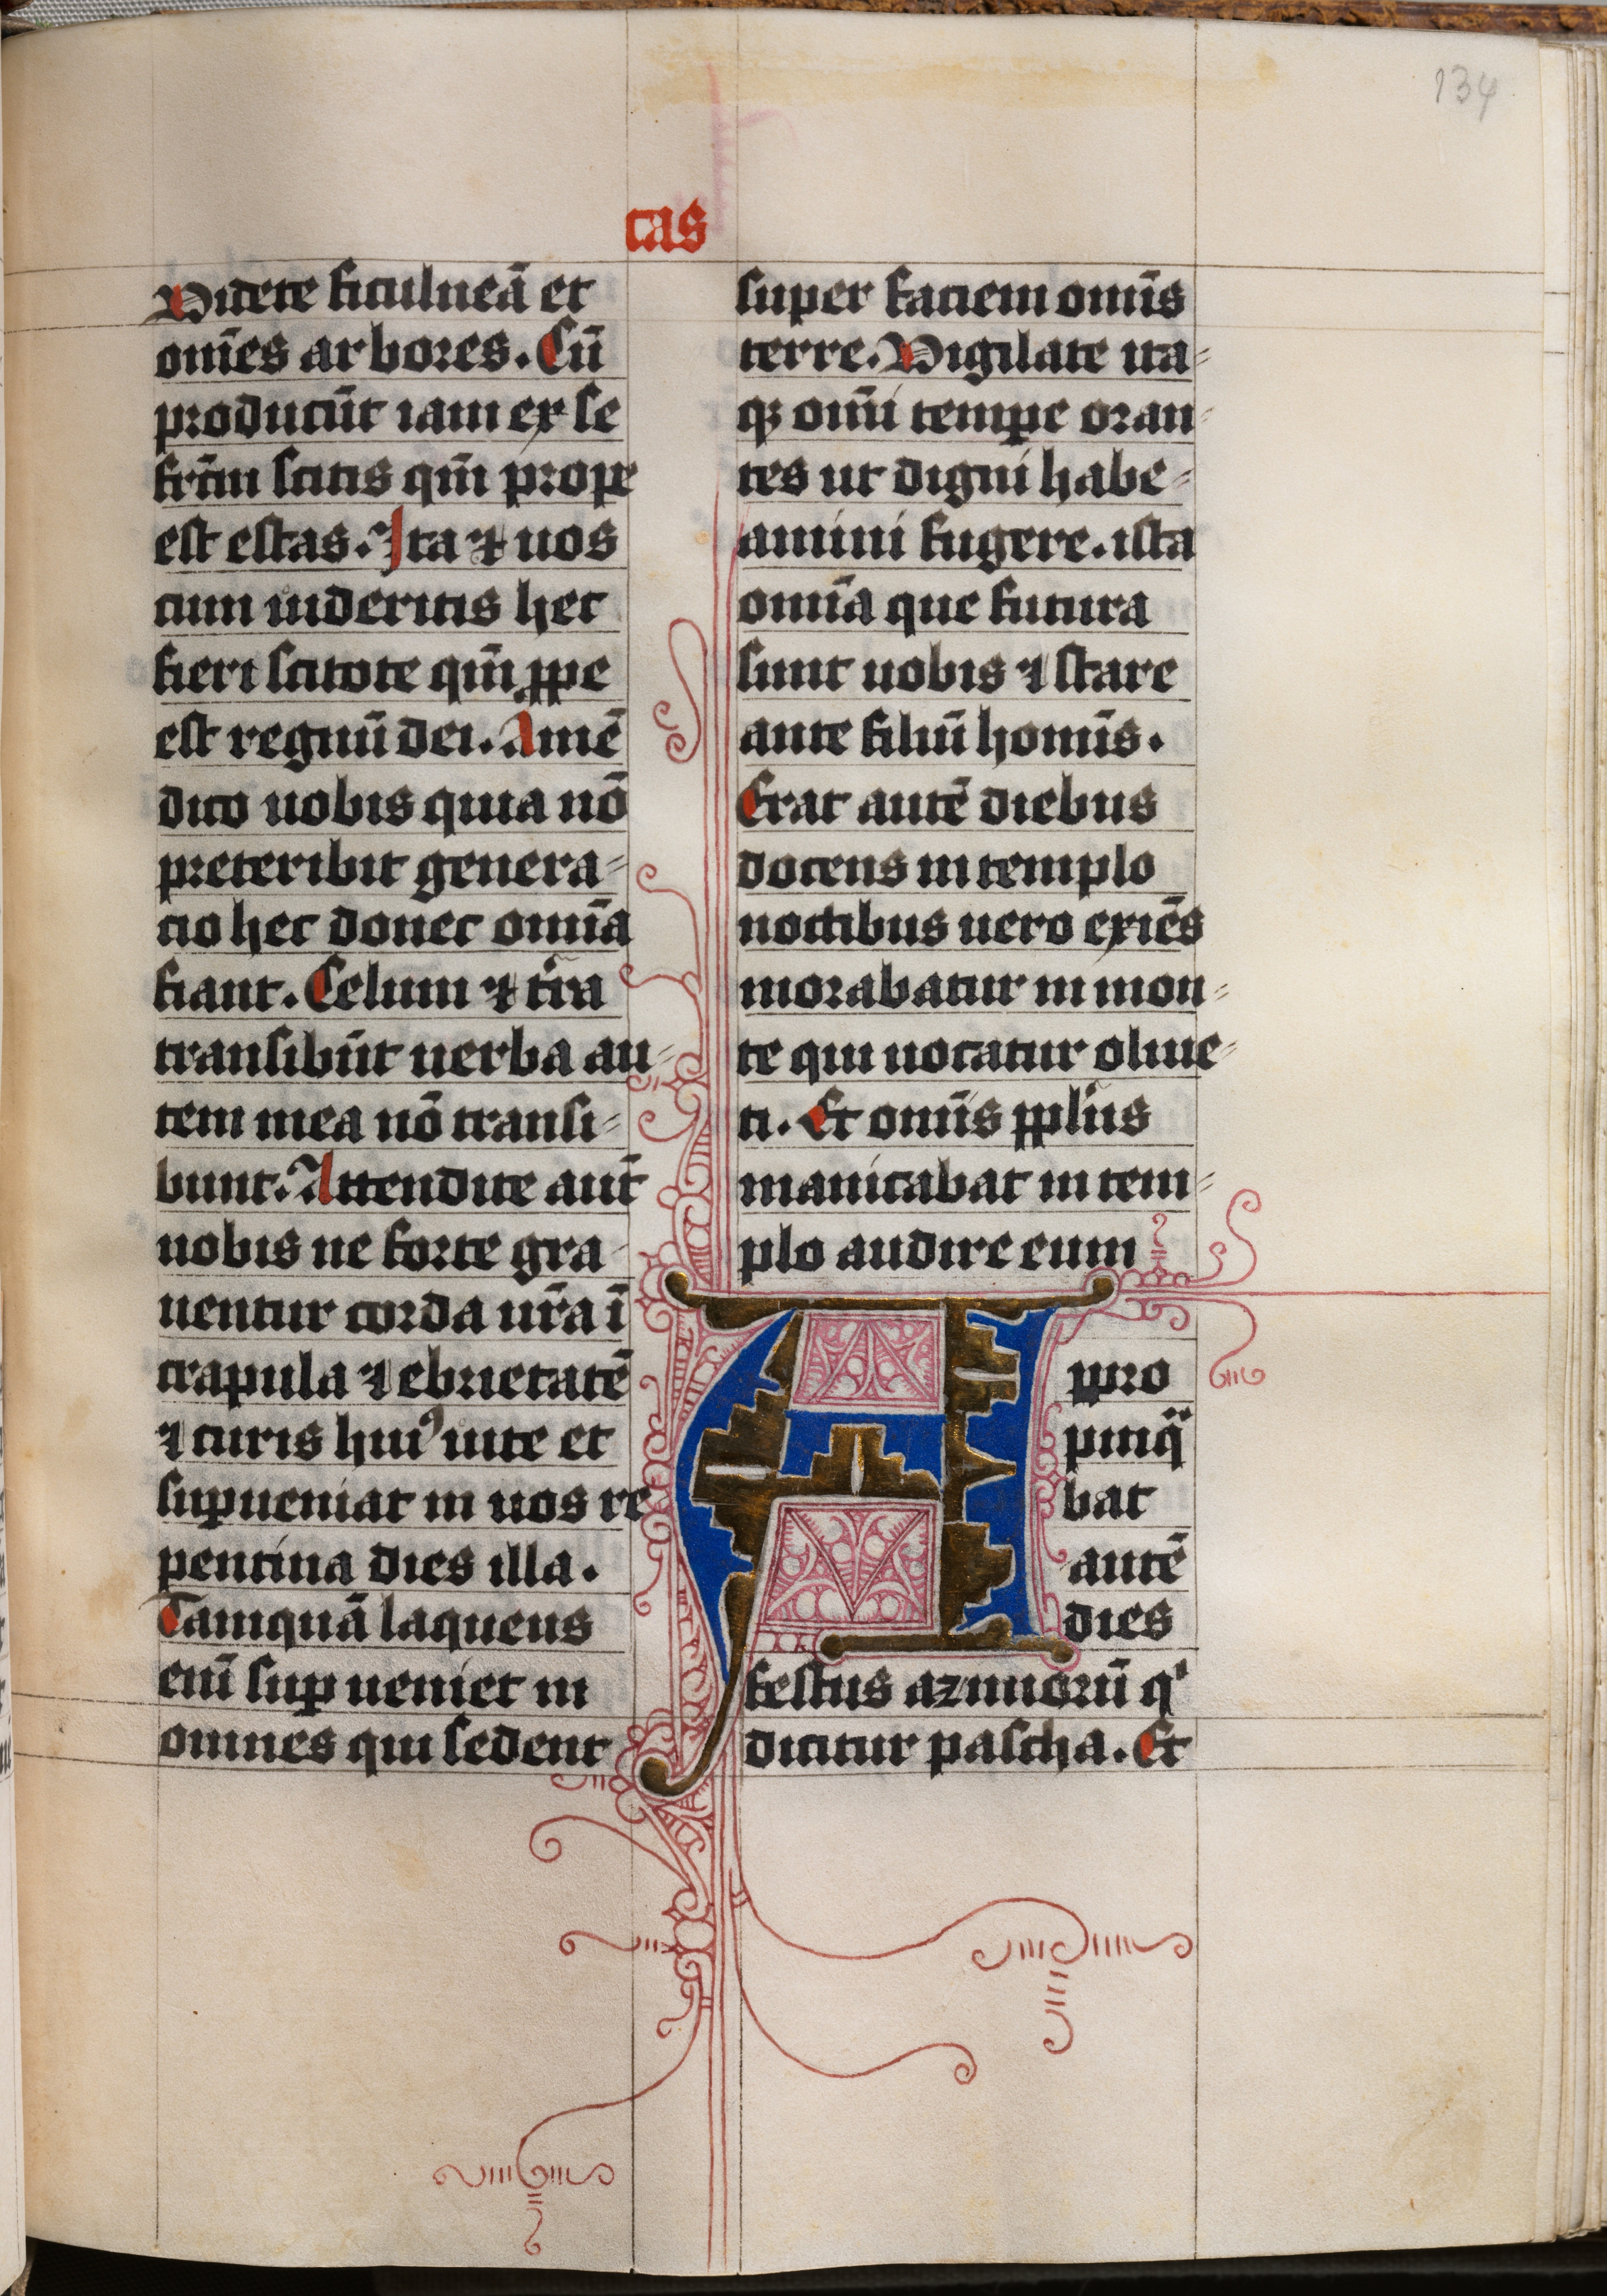 134
cas
Videte ficulneā et
om̄es arbores. Cū
producūt iam ex se
fr̄m scitis qm̄ prope
est estas. Ita ⁊ uos
cum uideritis hec
fieri scitote qm̄ ꝓpe
est regnū dei. Amē
dico uobis quia nō
preteribit genera⸗
cio hec donec omīa
fiant. Celum ⁊ tr̄ra
transibūt uerba au⸗
tem mea nō transi⸗
bunt. Attendite aut̄
uobis ne forte gra
uentur corda ur̄a ī
crapula ⁊ ebrietatē
⁊ curis huiꝰ uite et
suꝑueniat in uos re
pentina dies illa.
Tamquā laqueus
enī suꝑ ueniet in
omnes qui sedent
super faciem omīs
terre. Vigilate ita⸗
qꝫ omī temꝑe oran⸗
tes ut digni habe⸗
amini fugere. ista
omīa que futura
sunt uobis ⁊ stare
ante filiū homīs.
Erat autē diebus
docens in templo
noctibus uero exiēs
morabatur in mon⸗
te qui uocatur oliue⸗
ti. Et omīs ppl̄us
manicabat in tem⸗
plo audire eum
Appro
pinqͣ
bat
autē
dies
festus azimorū qⁱ
dicitur pascha. Et